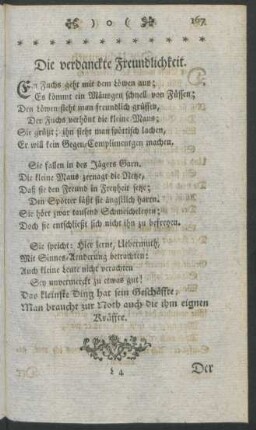 ) o ( 167
Die verdanckte Freundlichkeit.
Ein Fuchs geht mit dem Löwen aus;
Es kömmt ein Mäusgen schnell von Füssen;
Den Löwen sieht man freundlich grüssen,
Der Fuchs verhönt die kleine Maus;
Sie grüßt; ihn sieht man spöttisch lachen,
Er will kein Gegen-Complimentgen machen.
Sie fallen in des Jägers Garn,
Die kleine Maus zernagt die Netze,
Daß sie den Freund in Freyheit setze;
Den Spötter läßt sie ängstlich harrn.
Sie hört zwar tausend Schmeicheleyen;
Doch sie entschließt sich nicht ihn zu befreyen.
Sie spricht: Hier lerne, Uebermuth,
Mit Sinnes-Aenderung betrachten:
Auch kleine Leute nicht verachten
Sey unvermerckt zu etwas gut!
Das kleinste Ding hat sein Geschäffte,
Man braucht zur Noth auch die ihm eignen
Kräffte.
L 4 Der